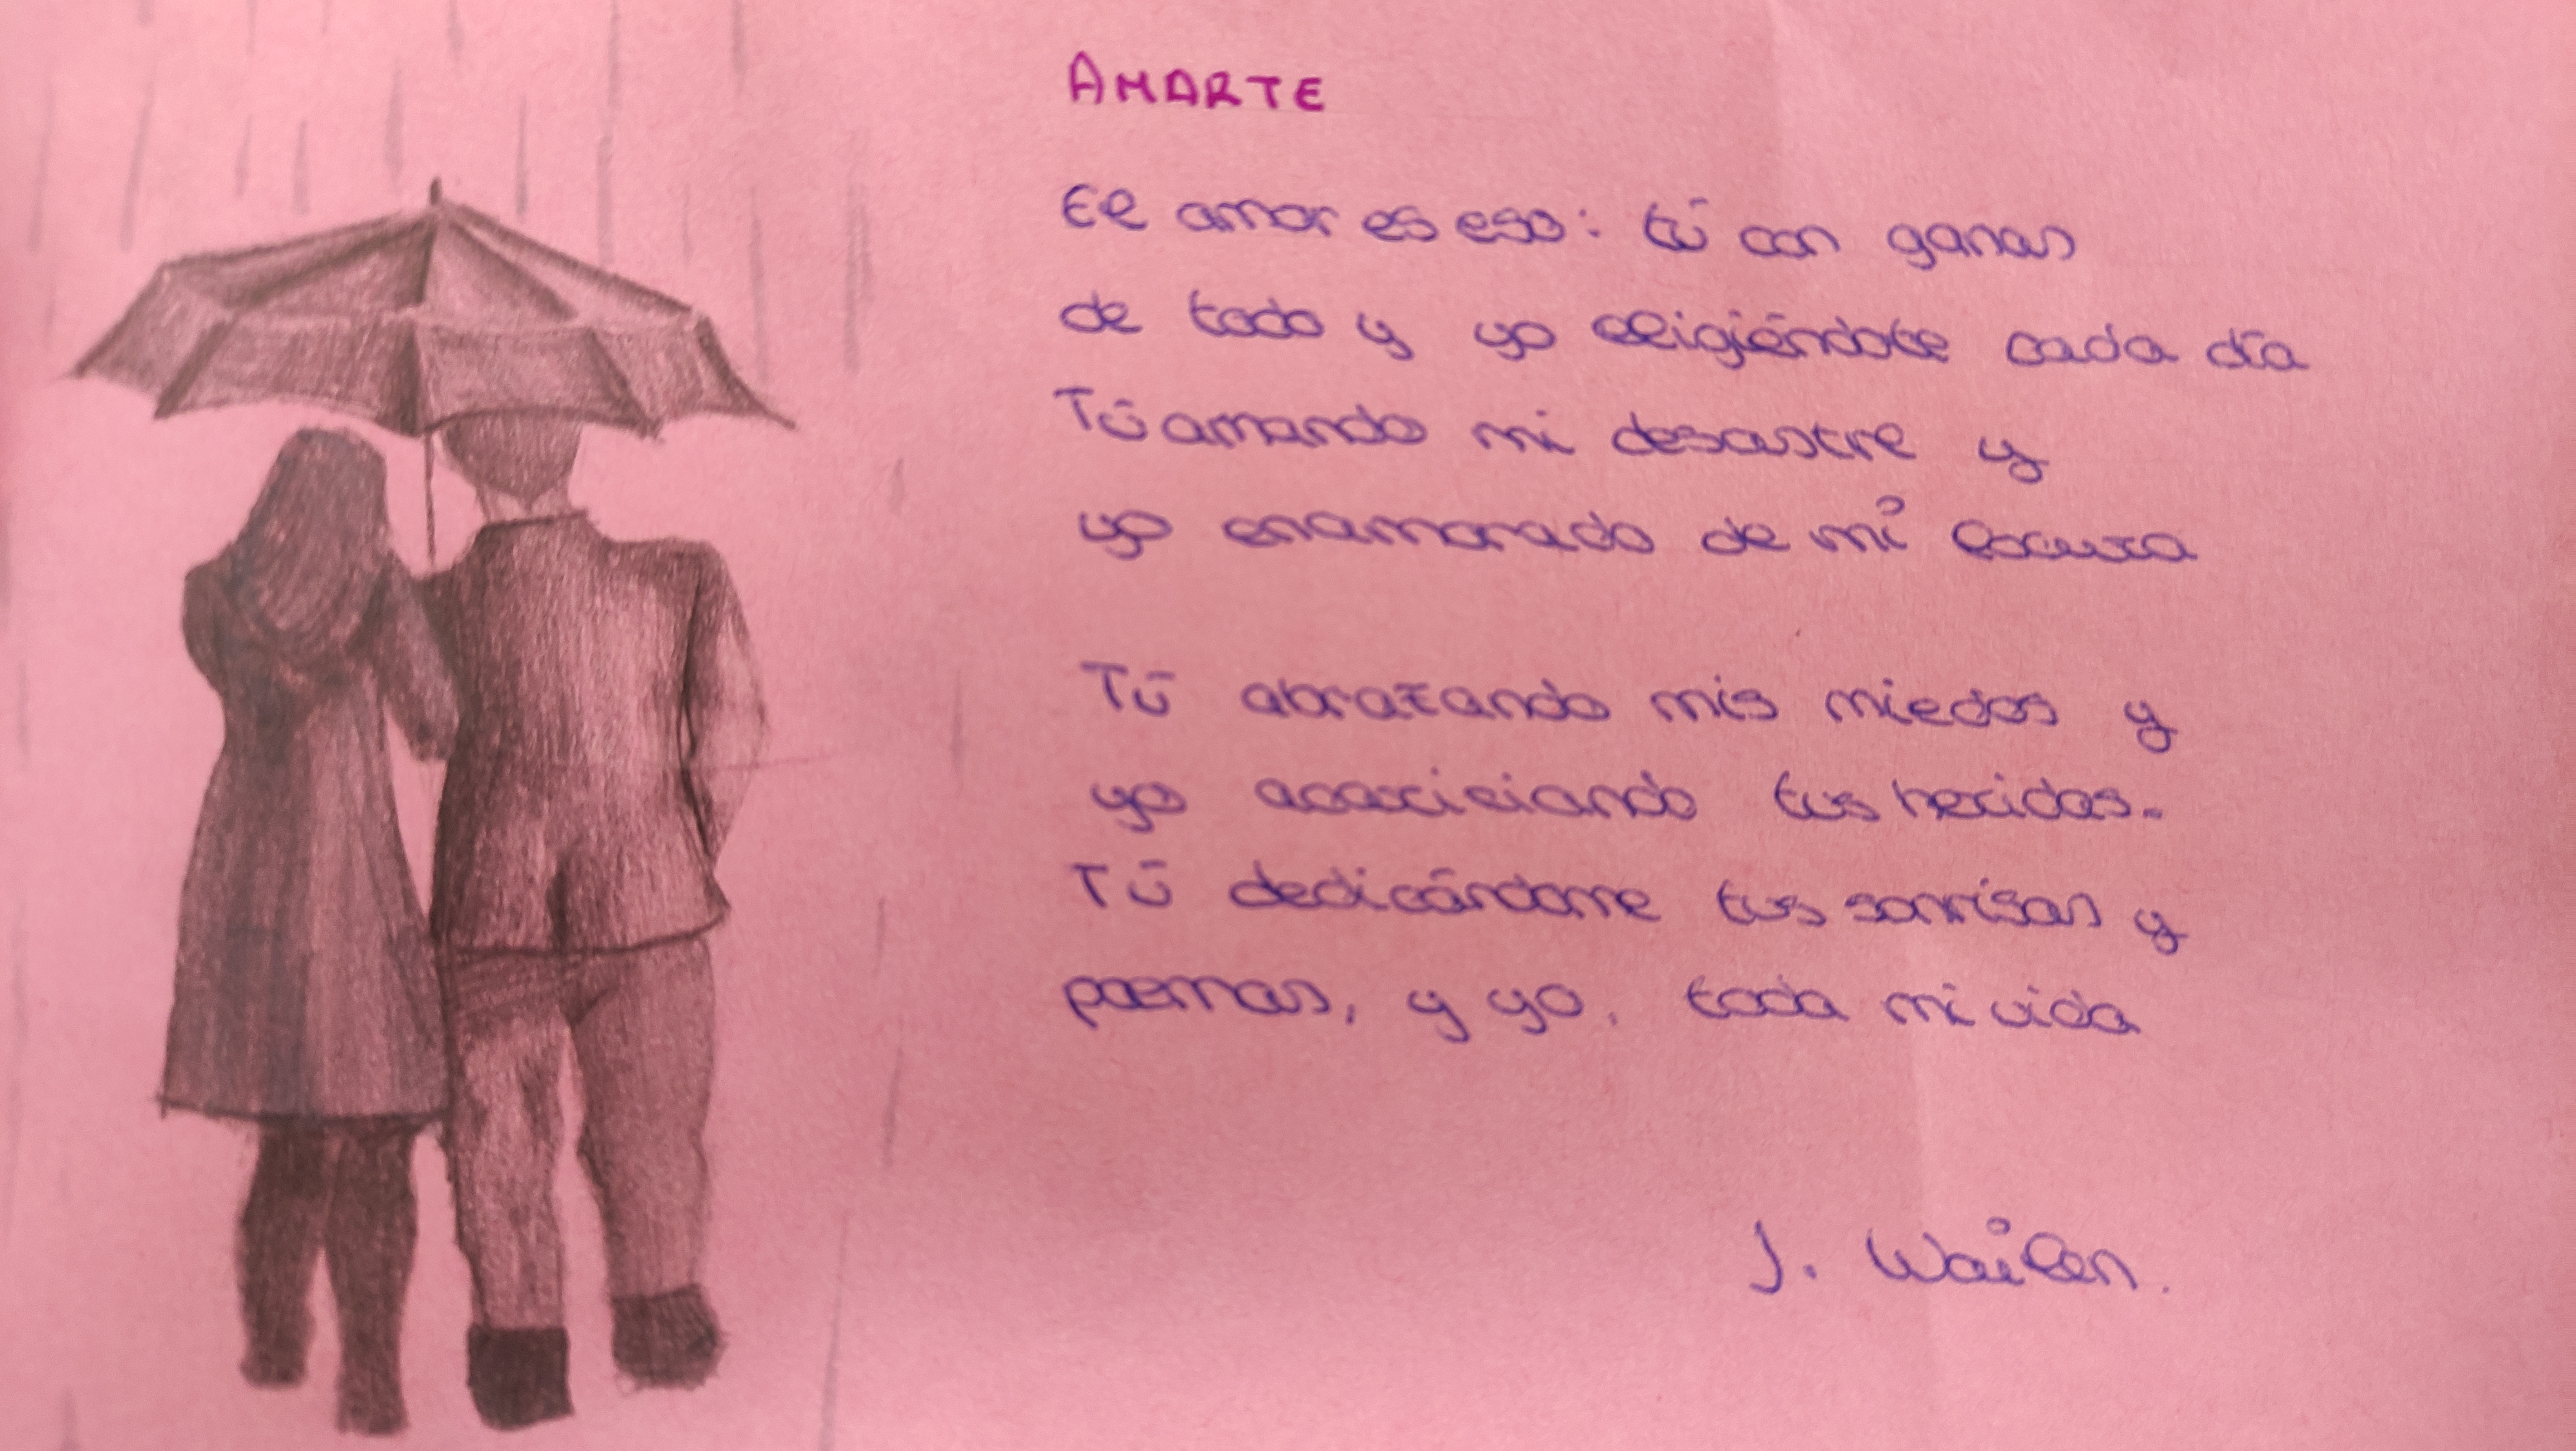 AMARTE
El amor es eso: tú con ganas
de todo y yo eligiéndote cada día
Tú amando mi desastre y
yo enamorado de mi locura
Tú abrazando mis miedos y
yo acariciando tus heridas.
Tú dedicándome tus sonrisas y
poemas, y yo, toda mi vida
J. Wailen.